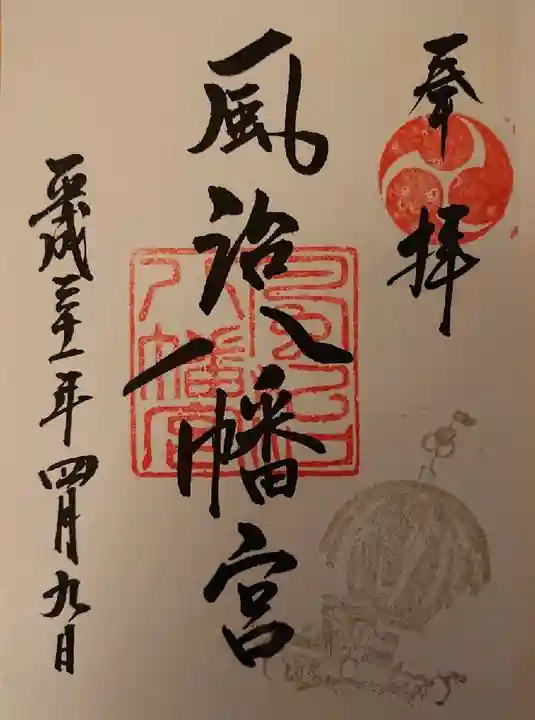 奉拝
風治八幡宮
平成三十一年四月九日